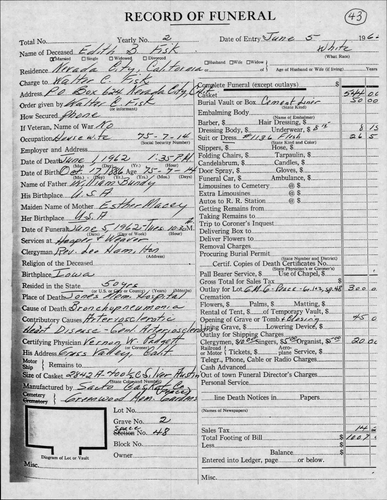 RECORD OF FUNERAL
43
Total No.
Yearly No. 2
Date of Entry June 5 196
Name of Deceased Edith B Fisk
White
(What Race)
Married Single Widowed Divorced
Husband Wife Widow
Age of Husband or Wife (if living)
Residence Nevada City, California
Charge to Walter C. Fisk
Address P.O. Box 624 Nevada City
Order given by Walter C. Fisk
How Secured phone
If Veteran, Name of War No
Occupation Housewife 75-7-14
(Social Security Number)
Employer and Address
Date of Death June 1, 1962 1:35 P.M.
Date of Birth Oct. 17 1886 75-7-14
Name of Father William Bundy
His Birthplace U.S.A
Maiden Name of Mother Esther Macey
Her Birthplace U.S.A
Date of Funeral June 5, 1962
Services at Hooper & Weaver
Clergyman Rev. Leo Hamilton
Religion of the Deceased
Birthplace Iowa
Resided in the State 50 yrs
Place of Death Jones Mem Hospital
Cause of Death Bronchopneumonia
Contributory Causes Arteriosclerotic
Heart Disease
Certifying Physician Vernon W. Padgett
His Address Grass Valley, Calif.
Motor Ship
Remains to
Size of Casket
Manufactured by Santo Casket Co
Cemetery
Crematory
Greenwood Mem. Gardens
Lot No.
Grave No. 2
Space
Section No. 48
Block No.
Owner
Diagram of Lot or Vault
Misc.
Complete Funeral (except outlays) $
Casket 544 00
Burial Vault or Box Cement liner 50 00
(State Kind)
Embalming Body
Barber, $ Hair Dressing, $
Dressing Body, $ Underwear, $
Suit or Dress, $
(State Kind and Color)
Slippers, $ Hose, $
Folding Chairs, $ Tarpaulin, $
Candelabrum, $ Candles, $
Door Spray, $ Gloves, $
Funeral Car, $ Ambulance, $
Limousines to Cemetery @ $
Extra Limousines @ $
Autos to R. R. Station @ $
Getting Remains from
Taking Remains to
Trip to Coroner's Inquest
Delivering Box to
Deliver Flowers to
Removal Charges
Procuring Burial Permit
(State Number and District)
Certif. Copies of Death Certificates No.
(State Physician's or Coroner's)
Pall Bearer Service, $ Use of Chapel, $
Gross Total for Sales Tax $
Outlay for Lot
Cremation
Flowers, $ Palms, $ Matting, $
Rental of Tent, $ of Temporary Vault, $
Opening of Grave or Tomb & Closing 45 0
Lining Grave, $ Lowering Device, $
Outlay for Shipping Charges
Clergyman, $ Singers, $ Organist, $ 20.00
Railroad or Motor
Aerial / Tickets, $ Aero-plane Service, $
Telegr., Phone, Cable or Radio Charges
Cash Advanced
Out of Town Undertaker or Funeral Director's Charges
Personal Service
line Death Notices in Papers
(Names of Newspapers)
Sales Tax
Total Footing of Bill $
Less
Balance
Entered into Ledger, page or below.
Misc.